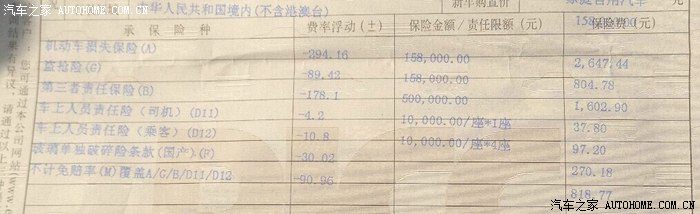 汽车之家 AUTOHOME.COM.CN
华人民共和国境内(不含港澳台) 新车购置价 家庭自用汽车
158,000.00
承保险种 费率浮动(±) 保险金额/责任限额(元) 保险费(元)
机动车损失保险(A) -294.16 158,000.00 2,647.44
盗抢险(G) -89.42 158,000.00 804.78
第三者责任保险(B) -178.1 500,000.00 1,602.90
车上人员责任险(司机)(D11) -4.2 10,000.00/座*1座 37.80
车上人员责任险(乘客)(D12) -10.8 10,000.00/座*4座 97.20
玻璃单独破碎险条款(国产)(F) -30.02 270.18
不计免赔率(M)覆盖A/G/B/D11/D12 -90.96 818.77
户：您可通过本公司网站(www.c
结果有异议，请通过以上
汽车之家 AUTOHOME.COM.CN